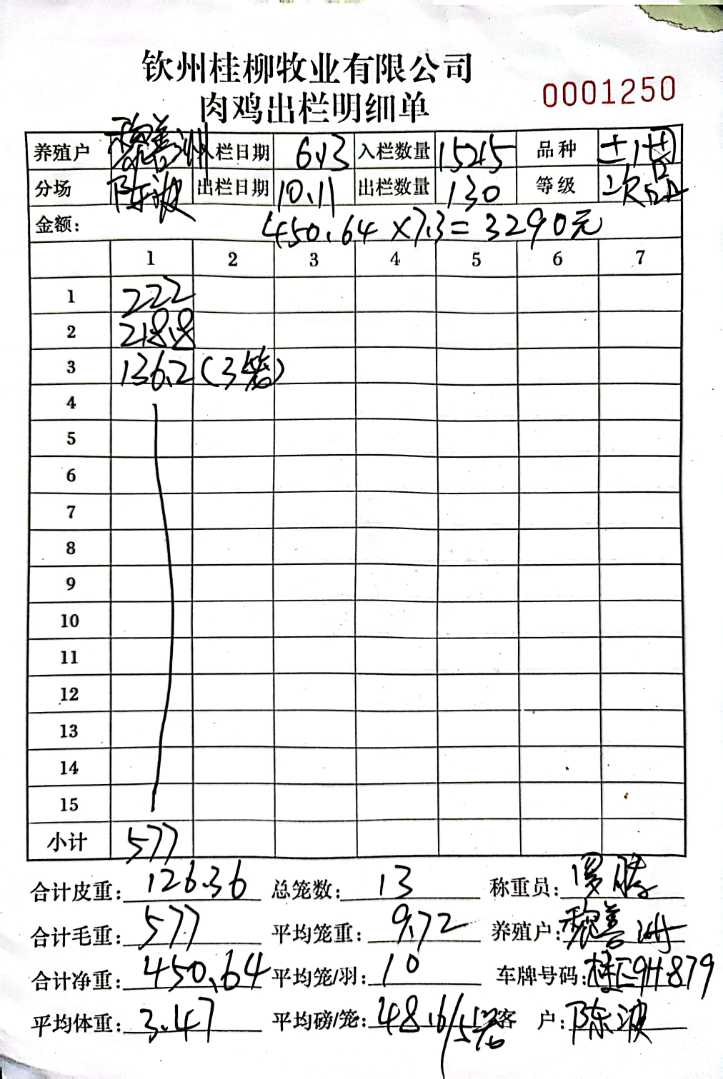 钦州桂柳牧业有限公司
肉鸡出栏明细单 0001250
养殖户 魏善洲 入栏日期 6.13 入栏数量 15215 品种
分场 陈波 出栏日期 10.11 出栏数量 130 等级 次品
金额: 450.64 × 7.3 = 3290元
1 2 3 4 5 6 7
1 222
2 218.8
3 136.2 (3笼)
4
5
6
7
8
9
10
11
12
13
14
15
小计 577
合计皮重: 126.36 总笼数: 13 称重员: 罗腾
合计毛重: 577 平均笼重: 9.72 养殖户: 魏善洲
合计净重: 450.64 平均笼/羽: 10 车牌号码: 桂E9H879
平均体重: 3.47 平均磅/笼: 48.6/5笼 客户: 陈波